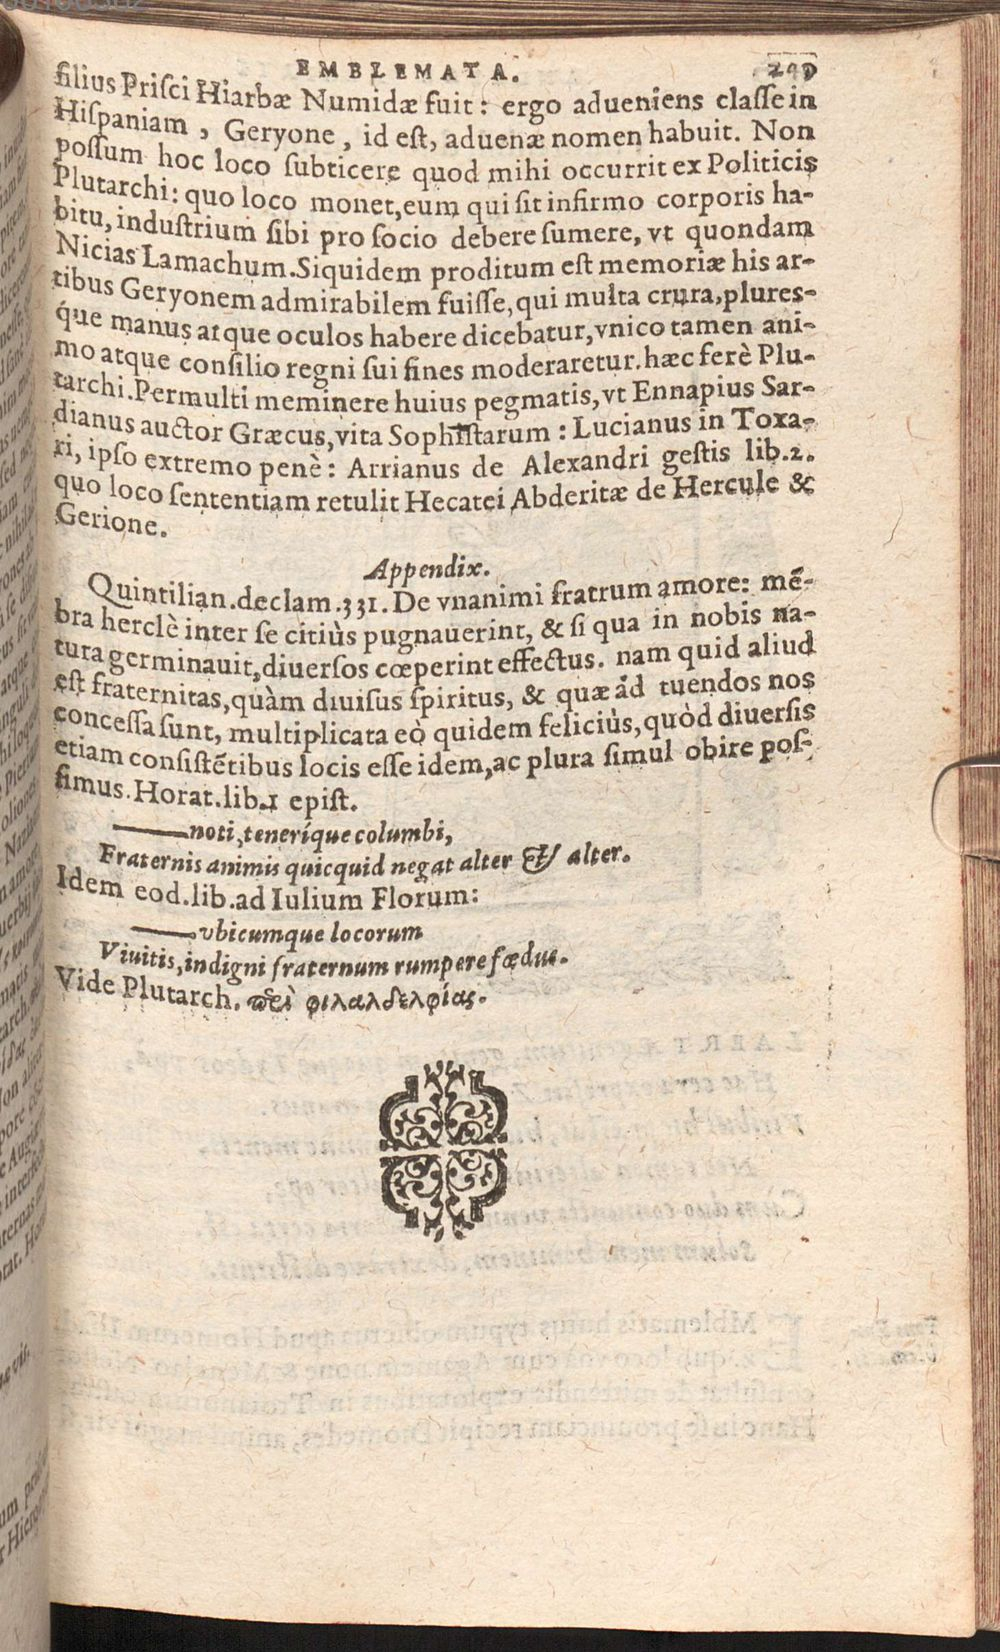 EMBLEMATA.
filius Prisci Hiarbæ Numidæ fuit: ergo adueniens classe in
Hispaniam, Geryone, id est, aduenæ nomen habuit. Non
possum hoc loco subticere quod mihi occurrit ex Politicis
Plutarchi: quo loco monet, eum qui sit infirmo corporis ha-
bitu, industrium sibi pro socio debere sumere, vt quondam
Nicias Lamachum. Siquidem proditum est memoriæ his ar-
tibus Geryonem admirabilem fuisse, qui multa crura, plures-
que manus atque oculos habere dicebatur, vnico tamen ani-
mo atque consilio regni sui fines moderaretur. hæc ferè Plu-
tarchi. Permulti meminere huius pegmatis, vt Ennapius Sar-
dianus auctor Græcus, vita Sophistarum: Lucianus in Toxa-
ri, ipso extremo penè: Arrianus de Alexandri gestis lib. 2.
quo loco sententiam retulit Hecatei Abderitæ de Hercule &
Gerione.
Appendix.
Quintilian. declam. 331. De vnanimi fratrum amore: mē-
bra herclè inter se citiùs pugnauerint, & si qua in nobis na-
tura germinauit, diuersos cœperint effectus. nam quid aliud
est fraternitas, quàm diuisus spiritus, & quæ ad tuendos nos
concessa sunt, multiplicata eò quidem feliciùs, quòd diuersis
etiam consistētibus locis esse idem, ac plura simul obire pos-
simus. Horat. lib. 1 epist.
—— noti, teneríque columbi,
Fraternis animis quicquid negat alter & alter.
Idem eod. lib. ad Iulium Florum:
—— vbicumque locorum
Viuitis, indigni fraternum rumpere fœdus.
Vide Plutarch. περὶ φιλαλδελφίας.